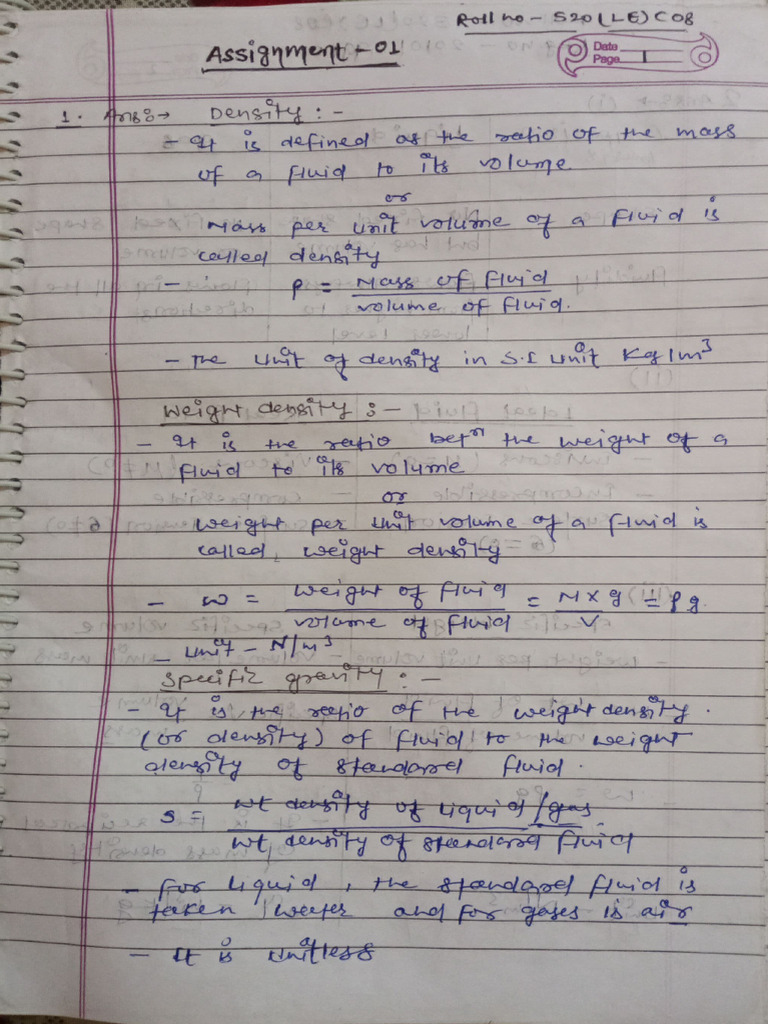 Roll no - S20(LE)C08
Assignment - 01
Date
Page 1
1. Ans:→ Density :-
- It is defined as the ratio of the mass
of a fluid to its volume
or
Mass per unit volume of a fluid is
called density
- ρ = Mass of fluid / volume of fluid.
- The unit of density in S.I unit Kg/m³
Weight density :-
- It is the ratio betⁿ the weight of a
fluid to its volume
or
weight per unit volume of a fluid is
called, weight density
- w = weight of fluid / volume of fluid = M × g / V = ρg.
- unit - N/m³
Specific gravity :-
- It is the ratio of the weight density.
(or density) of fluid to the weight
density of standard fluid.
S = wt density of liquid/gas / wt density of standard fluid
- For liquid, the standard fluid is
taken water and for gases is air
- It is unitless